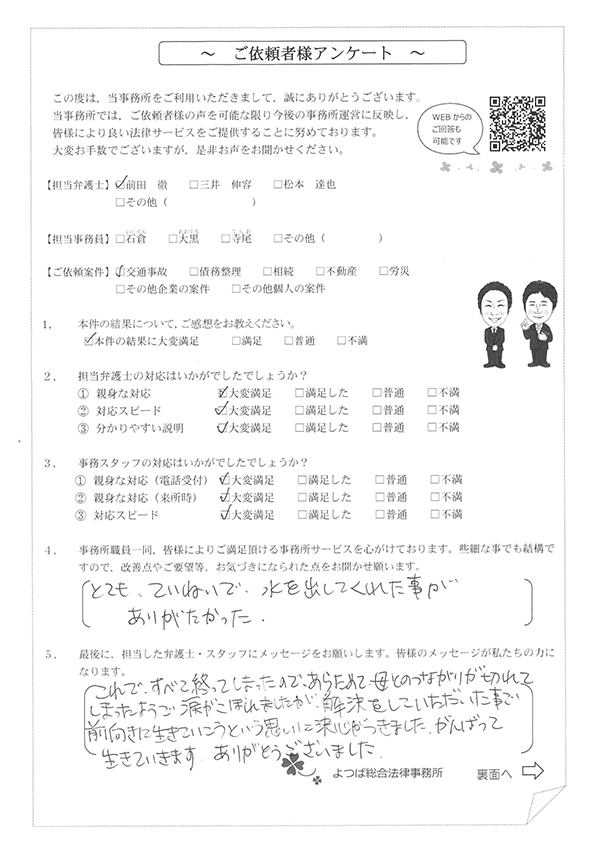 ～ ご依頼者様アンケート ～
この度は、当事務所をご利用いただきまして、誠にありがとうございます。
当事務所では、ご依頼者様の声を可能な限り今後の事務所運営に反映し、
皆様により良い法律サービスをご提供することに努めております。
大変お手数でございますが、是非お声をお聞かせください。
WEBからの
ご回答も
可能です
【担当弁護士】☑前田 徹 □三井 伸容 □松本 達也
□その他（ ）
【担当事務員】□石倉 □大黒 □寺尾 □その他（ ）
【ご依頼案件】☑交通事故 □債務整理 □相続 □不動産 □労災
□その他企業の案件 □その他個人の案件
1． 本件の結果について、ご感想をお教えください。
☑本件の結果に大変満足 □満足 □普通 □不満
2． 担当弁護士の対応はいかがでしたでしょうか？
① 親身な対応 ☑大変満足 □満足した □普通 □不満
② 対応スピード ☑大変満足 □満足した □普通 □不満
③ 分かりやすい説明 ☑大変満足 □満足した □普通 □不満
3． 事務スタッフの対応はいかがでしたでしょうか？
① 親身な対応（電話受付） ☑大変満足 □満足した □普通 □不満
② 親身な対応（来所時） ☑大変満足 □満足した □普通 □不満
③ 対応スピード ☑大変満足 □満足した □普通 □不満
4． 事務所職員一同、皆様によりご満足頂ける事務所サービスを心がけております。些細な事でも結構で
すので、改善点やご要望等、お気づきになられた点をお聞かせ願います。
とても、ていねいで、水を出してくれた事が
ありがたかった．
5． 最後に、担当した弁護士・スタッフにメッセージをお願いします。皆様のメッセージが私たちの力に
なります。
これで、すべて終ってしまったので、あらためて母とのつながりが切れて
しまったようで涙がこぼれましたが、解決をしていただいた事で
前向きに生きていこうという思いに決心がつきました。がんばって
生きていきます。ありがとうございました．
よつば総合法律事務所
裏面へ